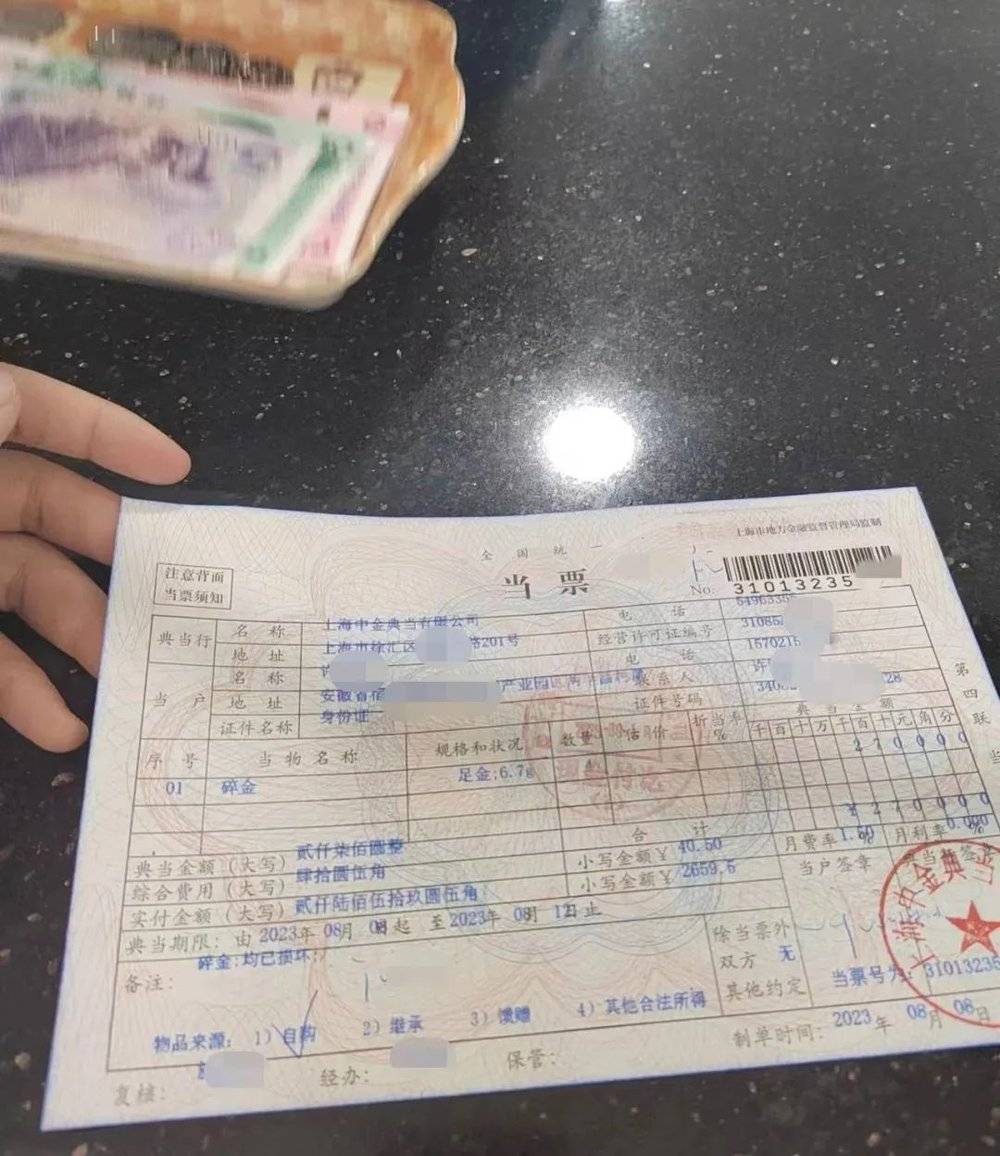 上海市地方金融监督管理局监制
全国统一
注意背面
当票须知
当票
No. 31013235
典当行 名称 上海中金典当有限公司 电话
地址 上海市徐汇区 路201号 经营许可证编号 31085
当户 名称 许 电话 1570215
地址 安徽省宿 产业园区 联系人 许
证件名称 身份证 证件号码 340 28
第四联
序号 当物名称 规格和状况 数量 估价 折当率% 典当金额
千百十万千百十元角分
01 碎金 足金:6.7g 270000
合计 ¥270000
典当金额(大写) 贰仟柒佰圆整
综合费用(大写) 肆拾圆伍角 小写金额¥ 40.50 月费率1.50 月利率0.000
实付金额(大写) 贰仟陆佰伍拾玖圆伍角 小写金额¥ 2659.5 当户签章
典当期限: 由2023年 08月 08起 至2023年 08月 12日止
备注: 碎金:均已损坏;
除当票外
双方 无
其他约定
当票号为: 31013235
物品来源: 1)自购 2)继承 3)馈赠 4)其他合法所得
制单时间: 2023年 08月 08日
复核: 经办: 保管:
中金典当